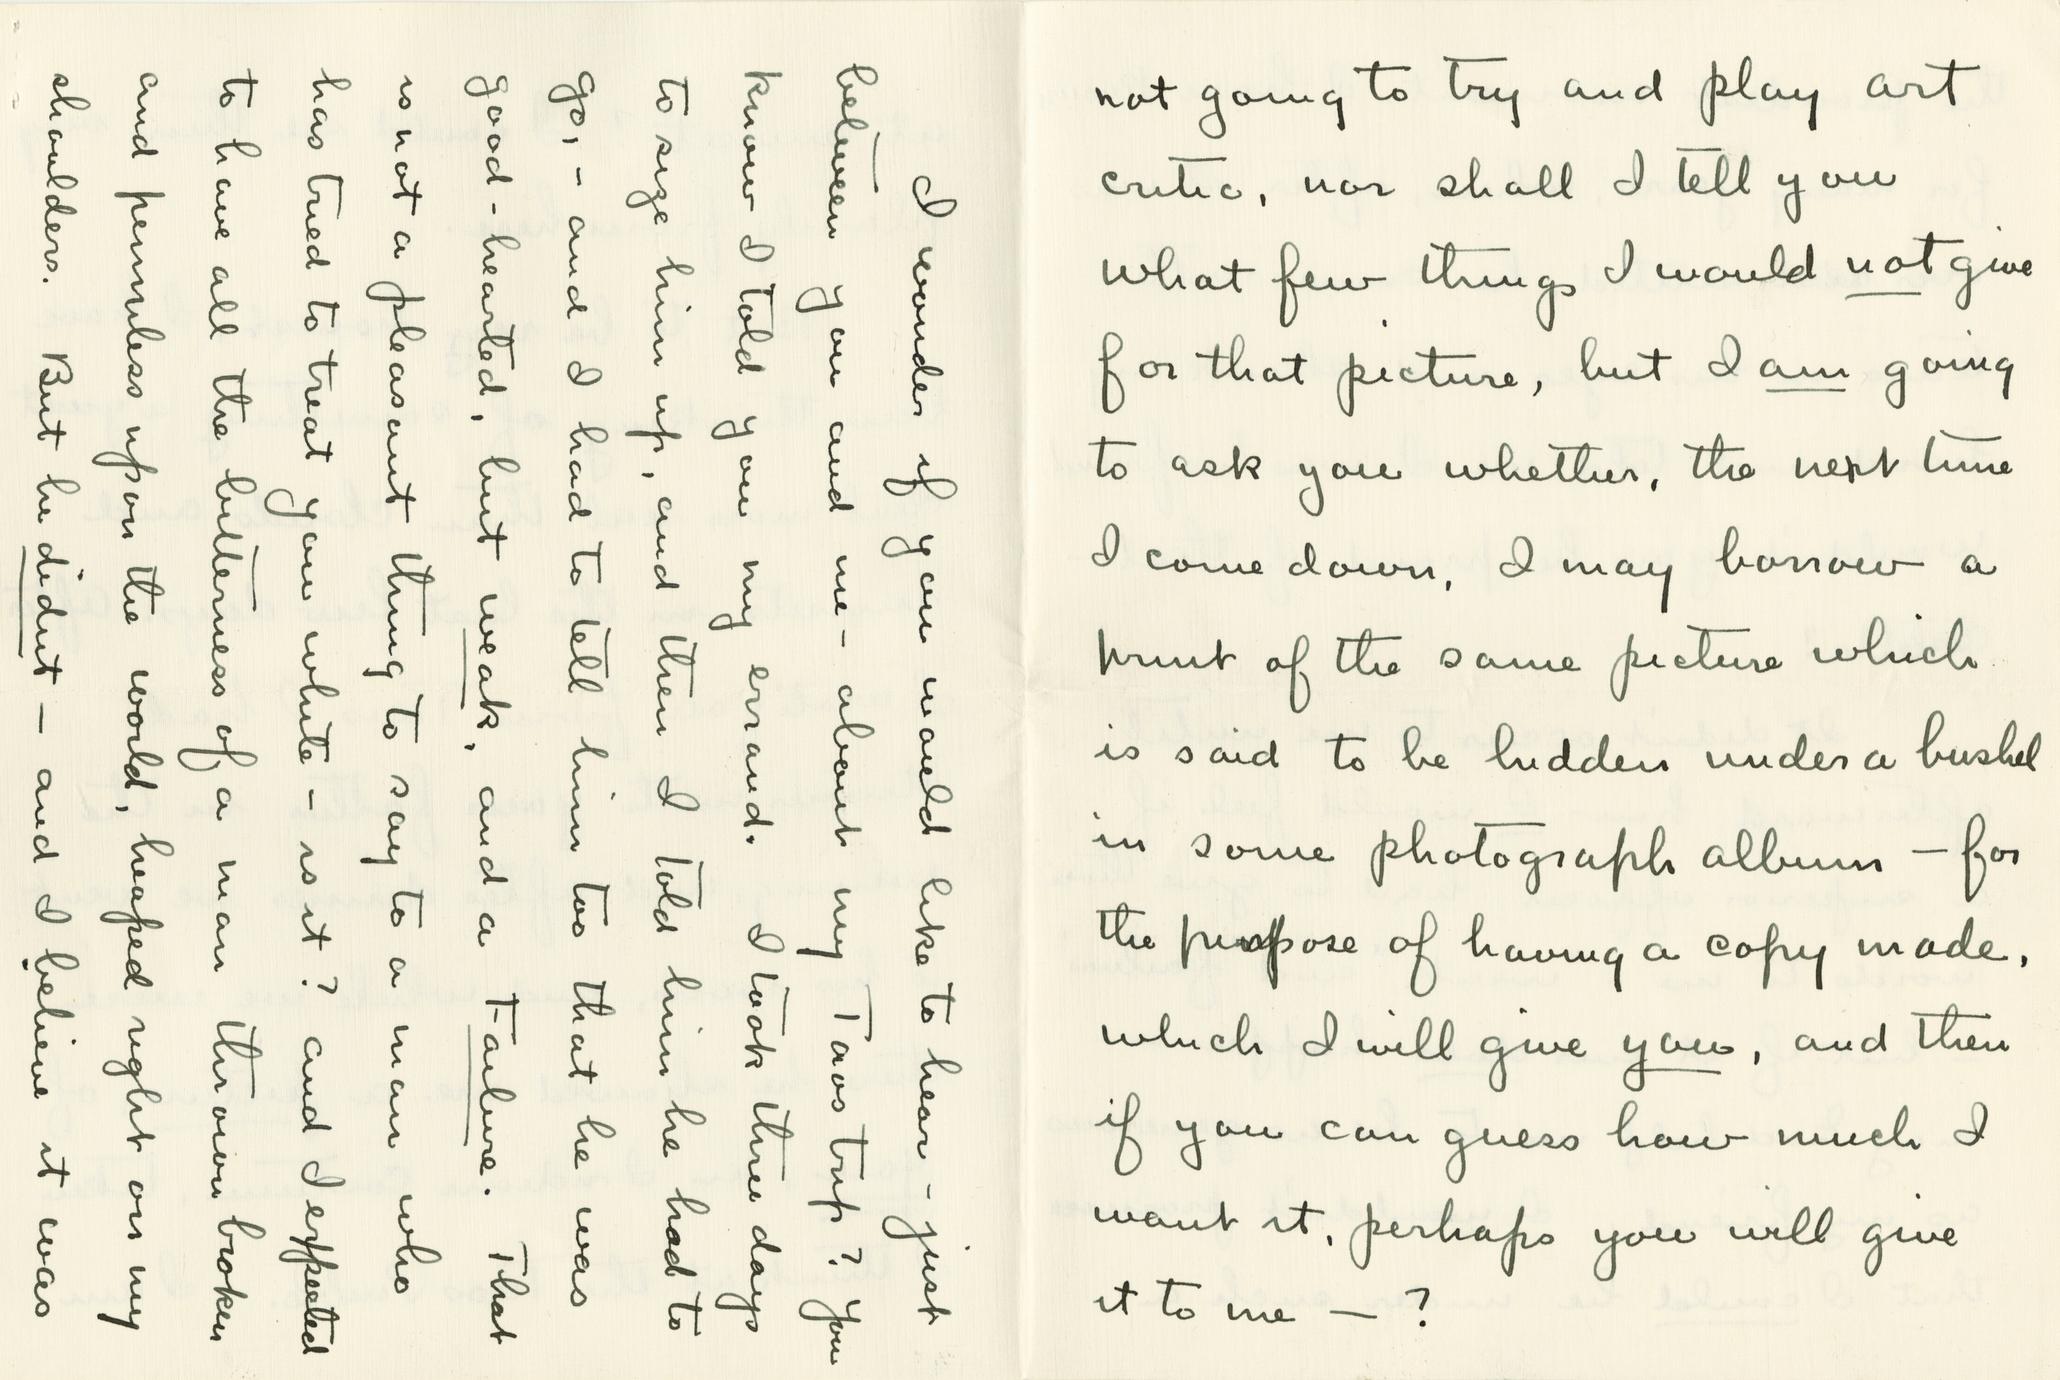 not going to try and play art
critic, nor shall I tell you
what few things I would not give
for that picture, but I am going
to ask you whether, the next time
I come down, I may borrow a
print of the same picture which
is said to be hidden under a bushel
in some photograph album – for
the purpose of having a copy made,
which I will give you, and then
if you can guess how much I
want it, perhaps you will give
it to me — ?
I wonder if you would like to hear – just
between you and me – about my Taos trip? You
know I told you my errand. I took three days
to size him up, and then I told him he had to
go, – and I had to tell him too that he was
good-hearted, but weak, and a Failure. That
is not a pleasant thing to say to a man who
has tried to treat you white – is it? and I expected
to have all the bitterness of a man thrown broken
and penniless upon the world, heaped right on my
shoulders. But he didnt – and I believe it was